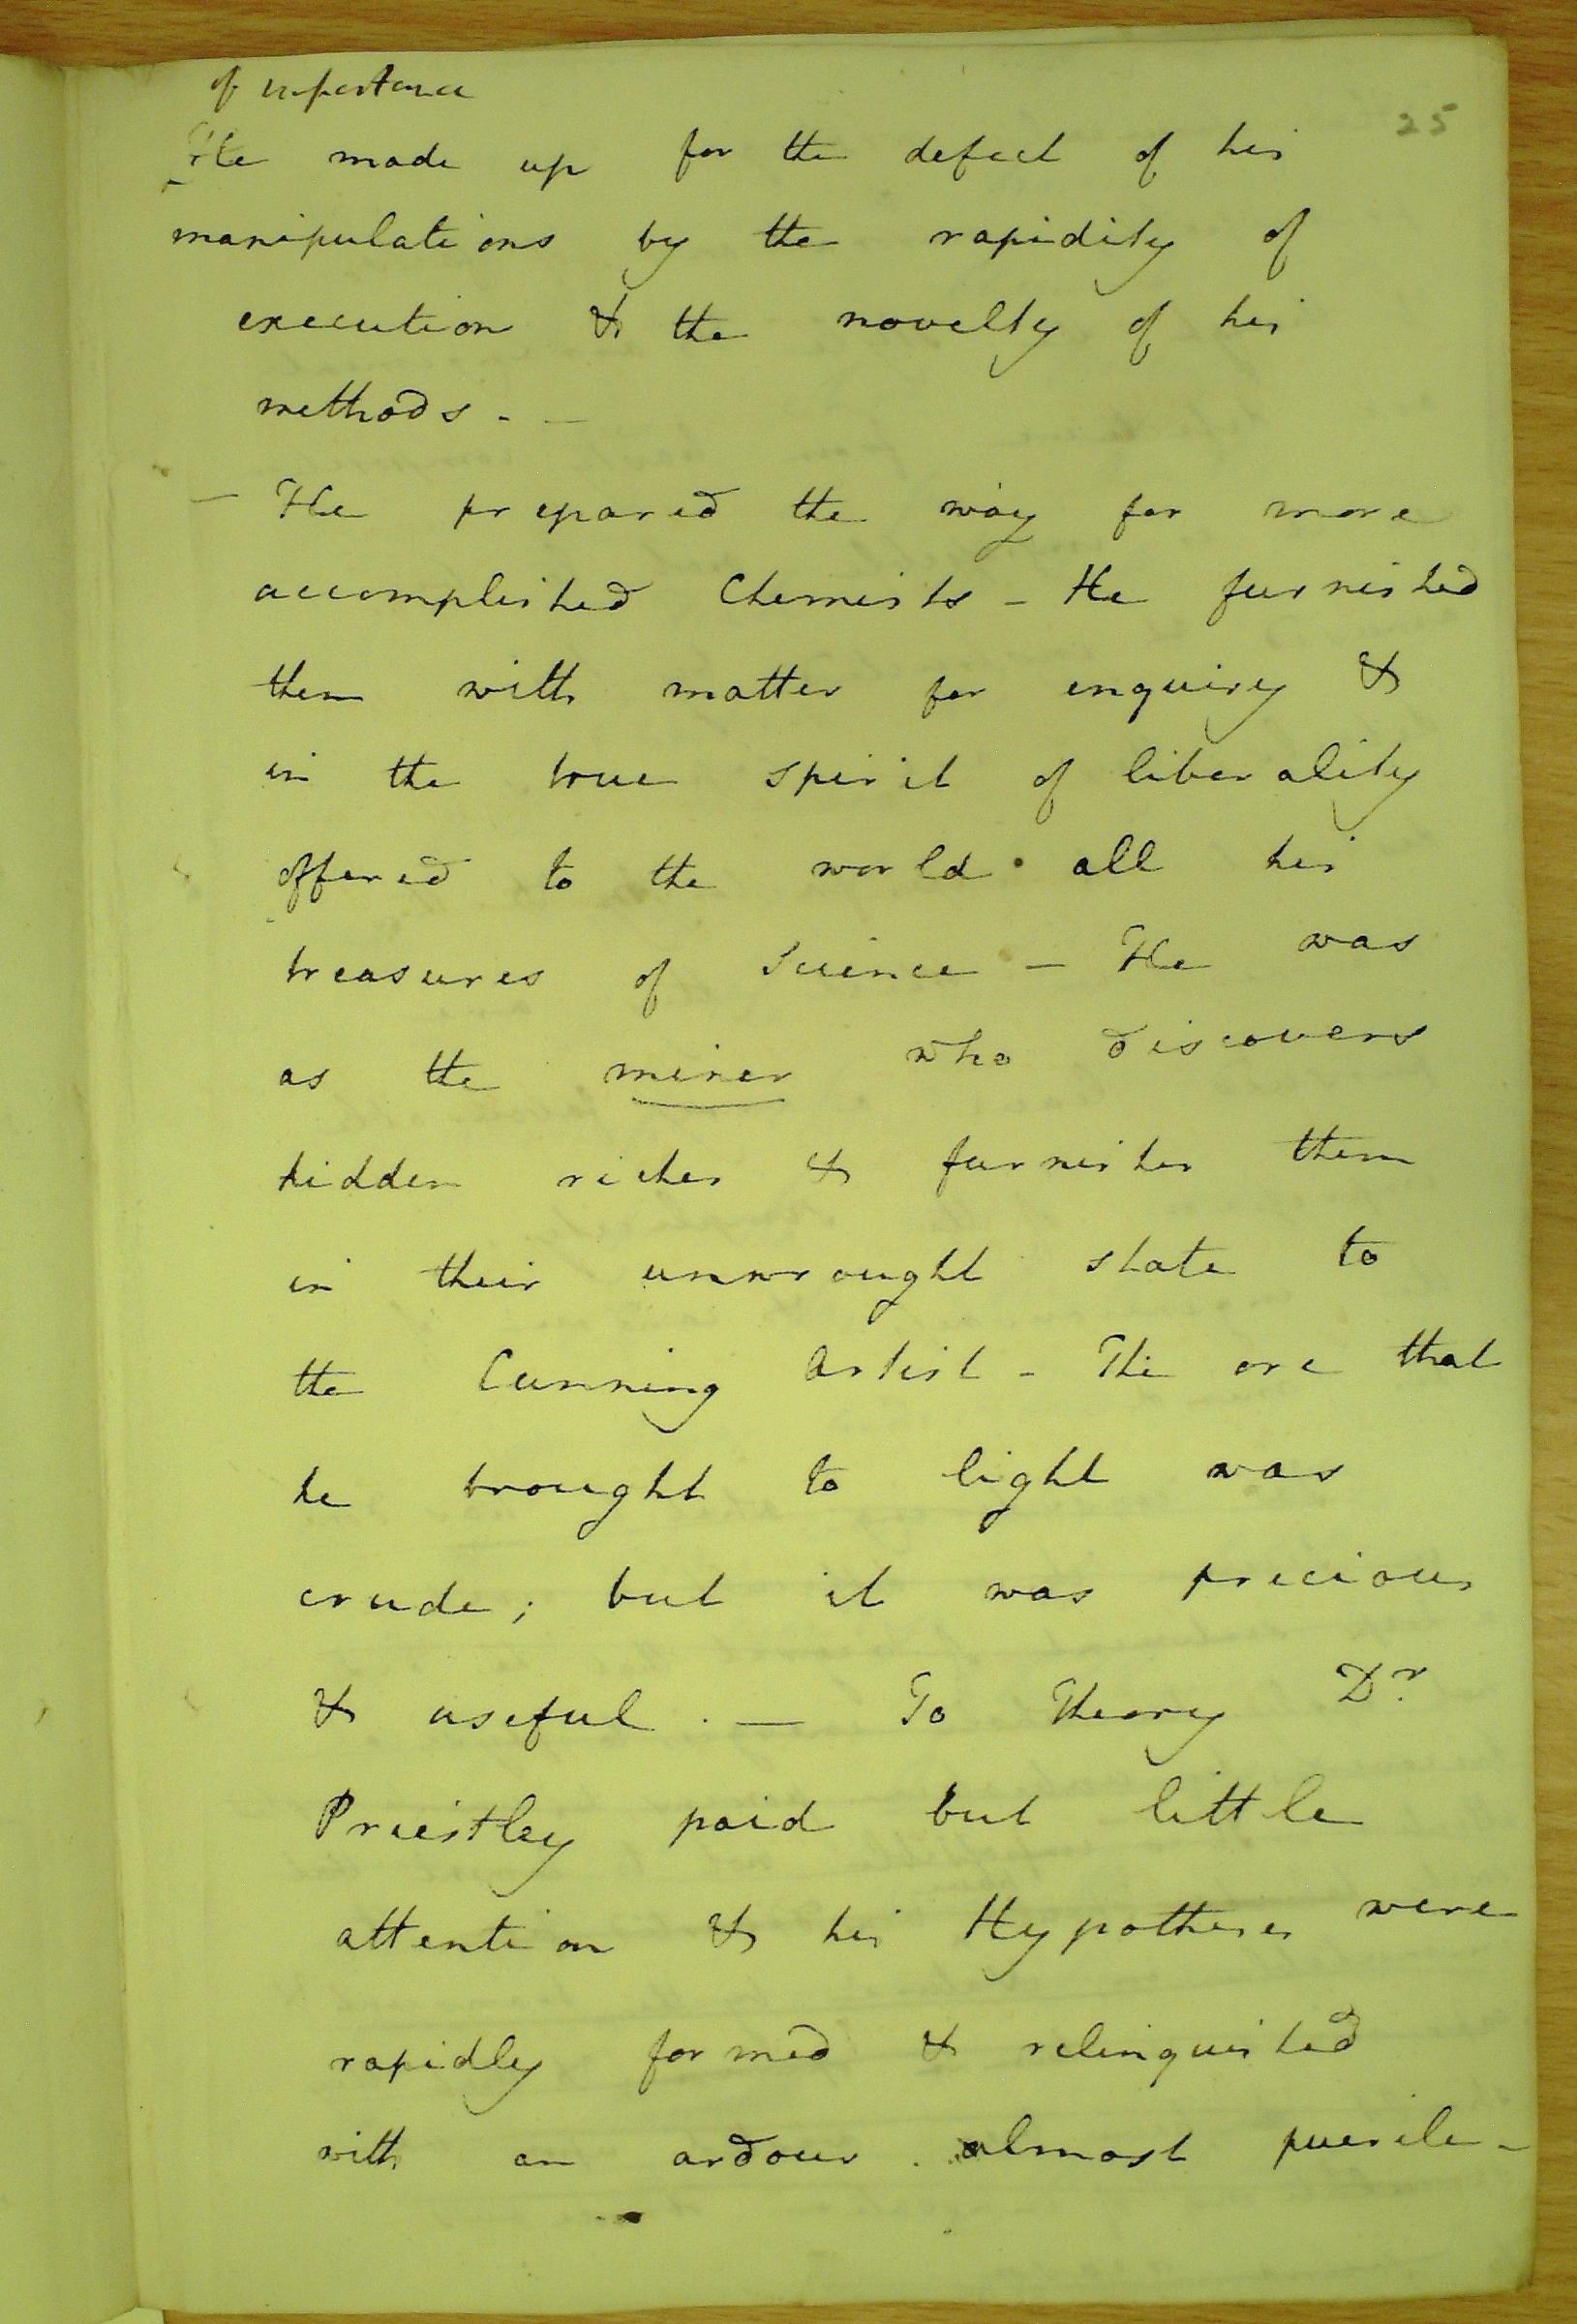 of importance
25
He made up for the defect of his
manipulations by the rapidity of
execution & the novelty of his
methods. -
- He prepared the way for more
accomplished Chemists - He furnished
them with matter for enquiry &
in the true spirit of liberality
offered to the world all his
treasures of Science - He was
as the miner who discovers
hidden riches & furnishes them
in their unwrought state to
the Cunning Artist - The ore that
he brought to light was
crude; but it was precious
& useful. - To Theory Dr.
Priestley paid but little
attention & his Hypotheses were
rapidly formed & relinquished
with an ardour almost puerile -